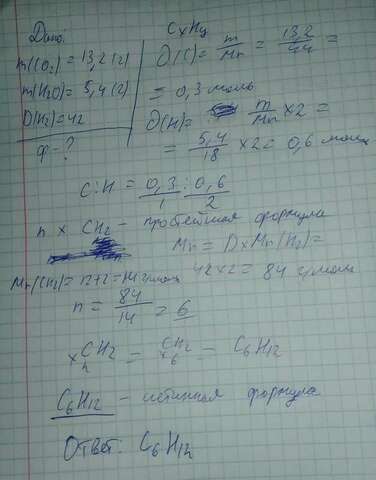 Дано:
m(CO₂) = 13,2 (г)
m(H₂O) = 5,4 (г)
D(H₂) = 42
ф - ?
CxHy
ν(C) = m/Mr = 13,2/44 =
= 0,3 моль
ν(H) = m/Mr × 2 =
= 5,4/18 × 2 = 0,6 моль
C:H = 0,3/1 : 0,6/2
n × CH₂ - простейшая формула
Mr = D×Mr(H₂) =
42×2 = 84 г/моль
Mr(CH₂) = 12+2 = 14 г/моль
n = 84/14 = 6
×CH₂ n = CH₂ ×6 = C₆H₁₂
C₆H₁₂ - истинная формула
Ответ: C₆H₁₂